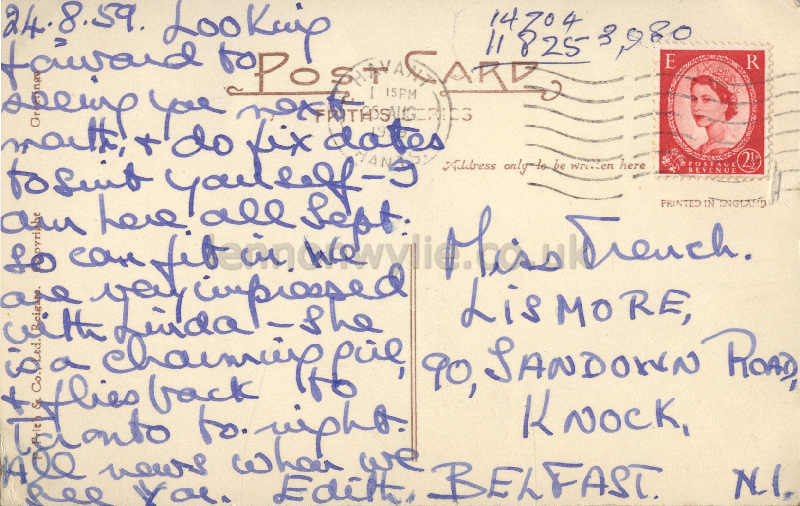 24.8.59. Looking
forward to
seeing you next
month, & do fix dates
to suit yourself - I
am here all Sept.
so can fit in. We
are very impressed
with Linda - she
is a charming girl,
& flies back to
Toronto to-night.
All news when we
see you. Edith.
14704
11825 3,980
POST CARD
FRITH'S SERIES
HAVANT
1 15PM
25 AUG
19
HANTS.
E R
POSTAGE
REVENUE
2½D
Address only to be written here
PRINTED IN ENGLAND
Miss French.
LISMORE,
90, SANDOWN ROAD,
KNOCK,
BELFAST. N.I.
F. Frith & Co., Ltd. Reigate. Copyright
lennonwylie.co.uk